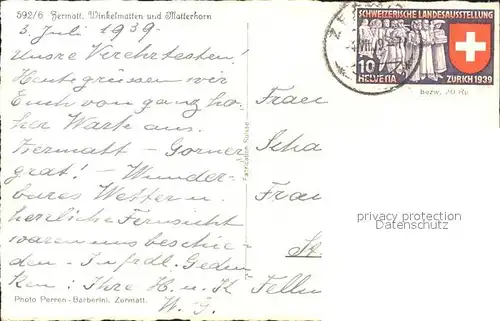 592/6 Zermatt. Winkelmatten und Matterhorn
3. Juli 1939
Unsre Verehrtesten!
Heute grüssen wir
Euch von ganz ho-
her Warte aus.
Zermatt – Gorner-
grat! – Wunder-
bares Wetter u.
herrliche Fernsicht
waren uns beschie-
den. In frdl. Geden-
ken: Ihre H. u. K
W. G.
Photo Perren-Barberini, Zermatt.
Fabrication Suisse
SCHWEIZERISCHE LANDESAUSSTELLUNG
10
HELVETIA
ZÜRICH 1939
bezw. 20 Rp.
ZE
Frau
Scha
Frau
St
Felln
privacy protection
Datenschutz